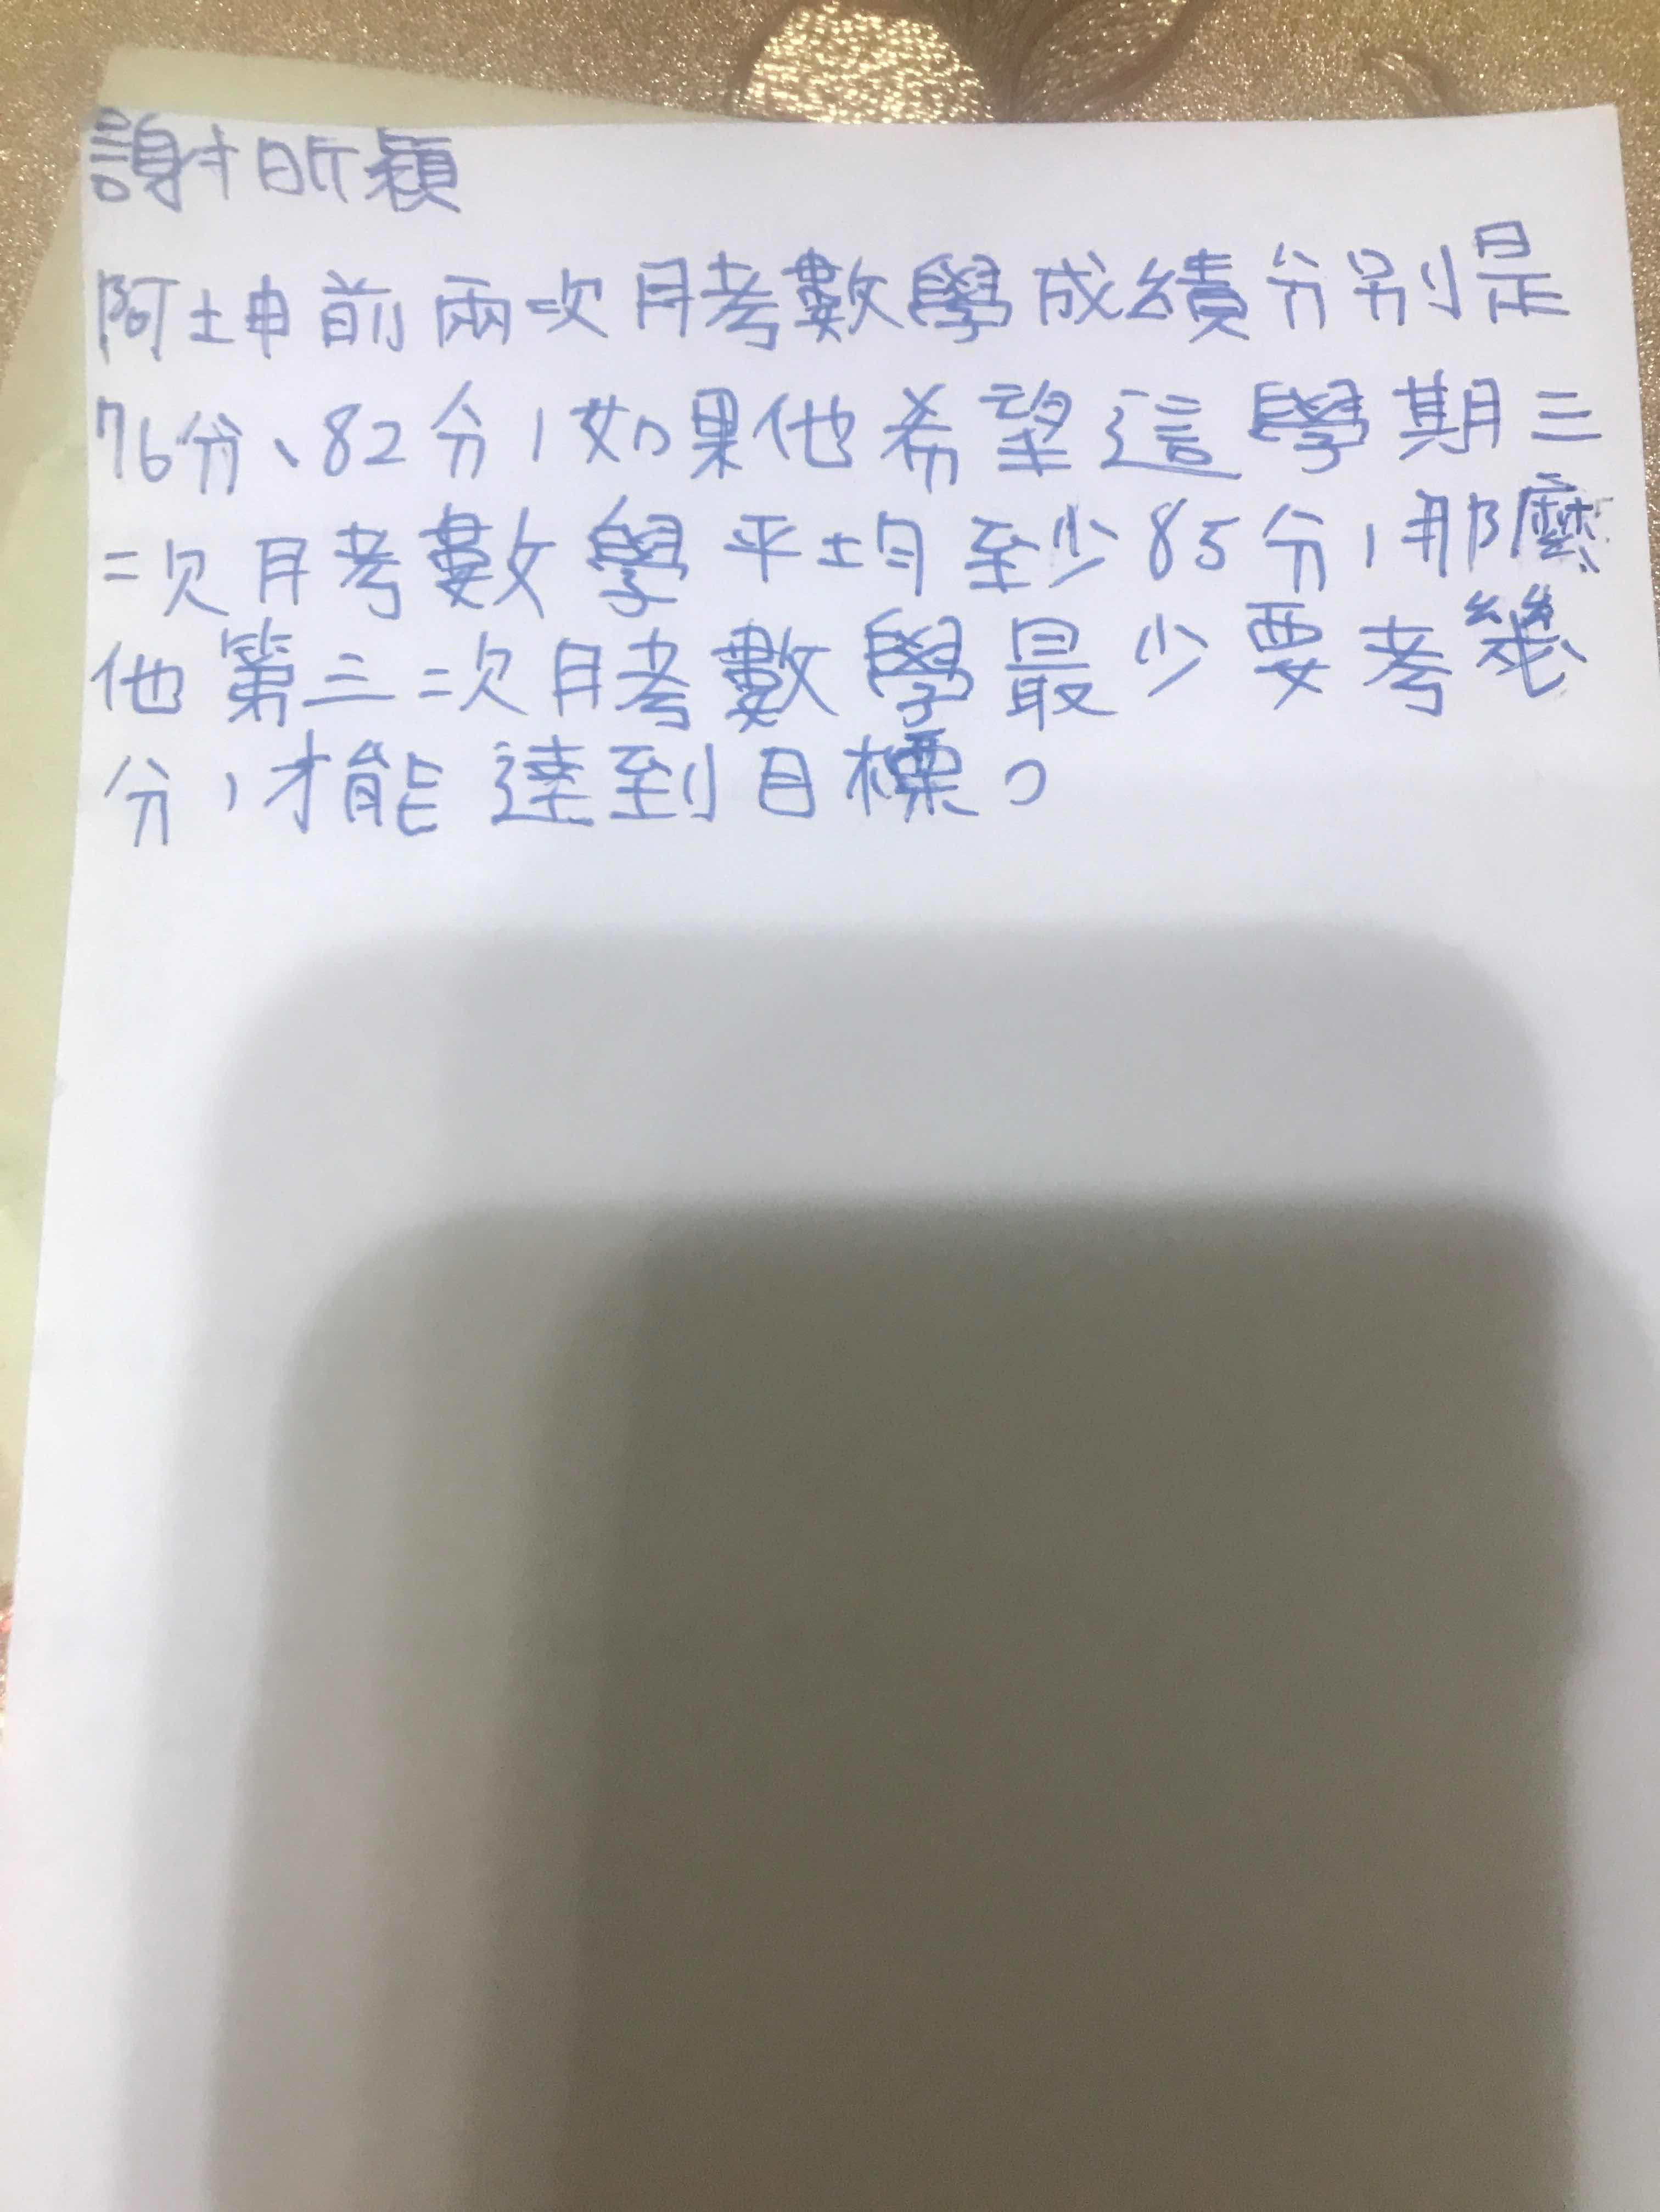 謝昕穎
阿坤前兩次月考數學成績分別是
76分、82分,如果他希望這學期三
次月考數學平均至少85分,那麼
他第三次月考數學最少要考幾
分,才能達到目標。